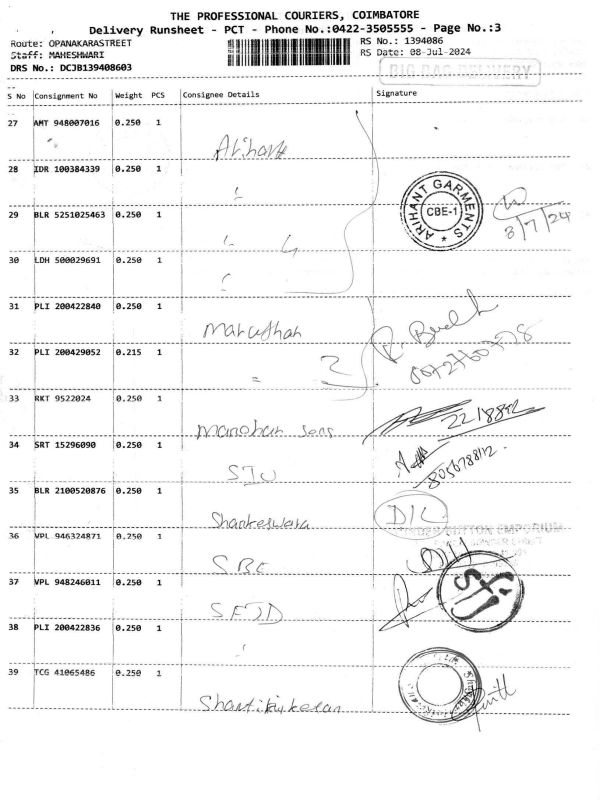 THE PROFESSIONAL COURIERS, COIMBATORE
Delivery Runsheet - PCT - Phone No.:0422-3505555 - Page No.:3
Route: OPANAKARASTREET
RS No.: 1394086
Staff: MAHESHWARI
RS Date: 08-Jul-2024
DRS No.: DCJB139408603
BIG BAG DELIVERY
S No Consignment No Weight PCS Consignee Details Signature
27 AMT 948007016 0.250 1
Arihant
28 IDR 100384339 0.250 1
ARIHANT GARMENTS
CBE-1
29 BLR 5251025463 0.250 1
8/7/24
30 LDH 500029691 0.250 1
31 PLI 200422840 0.250 1
Marudhar
32 PLI 200429052 0.215 1
33 RKT 9522024 0.250 1
Manohar Sons
34 SRT 15296090 0.250 1
35 BLR 2100520876 0.250 1
Shankeswara
BUTTON EMPORIUM
36 VPL 946324871 0.250 1
SBE
37 VPL 948246011 0.250 1
38 PLI 200422836 0.250 1
39 TCG 41065486 0.250 1